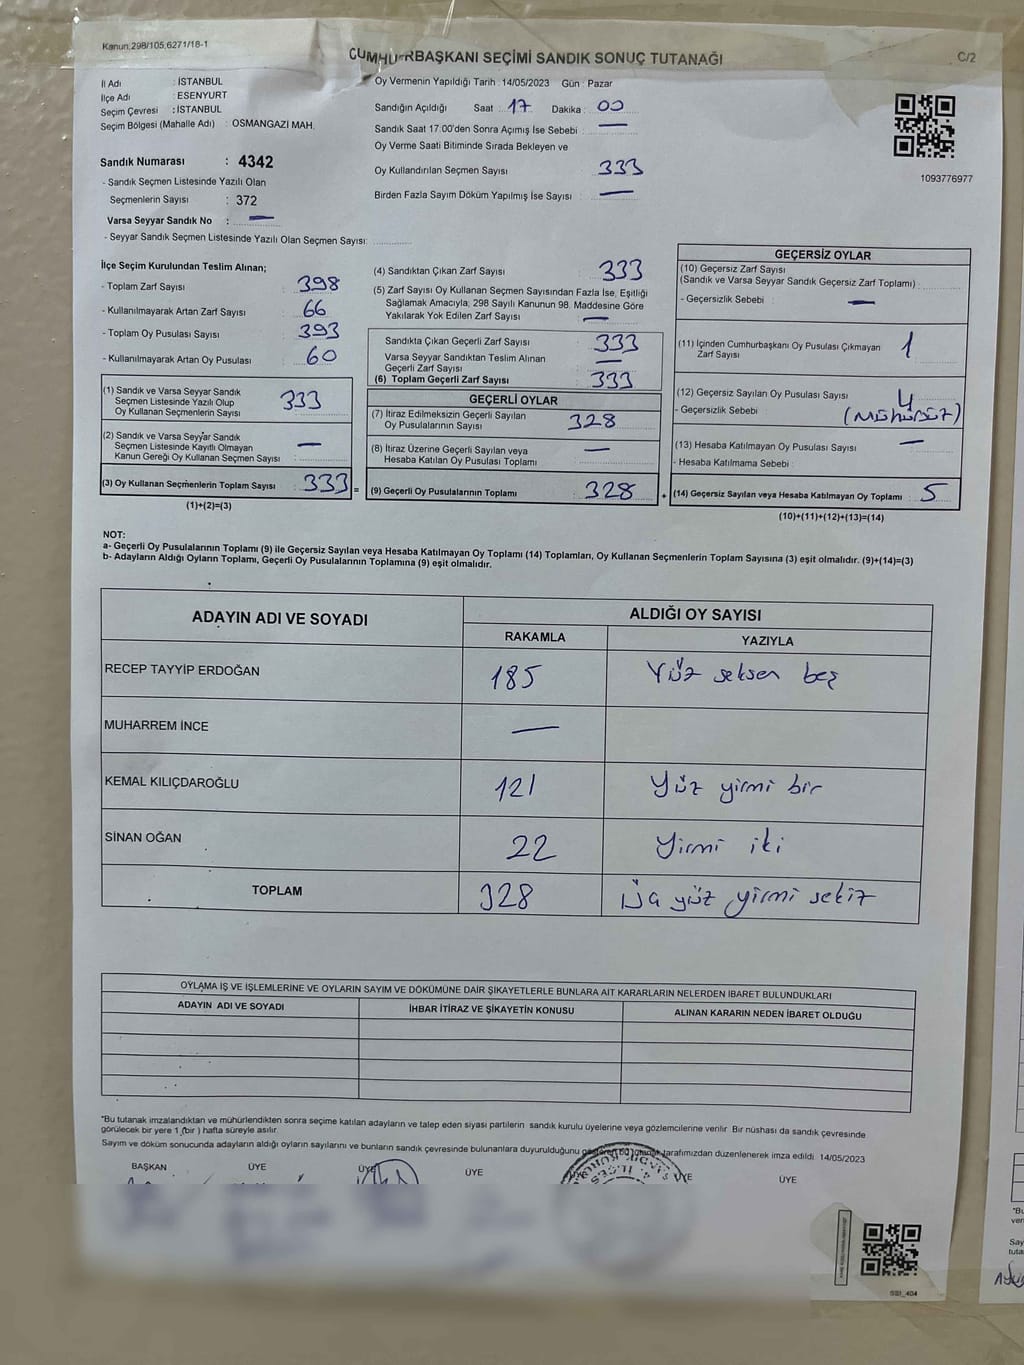 Kanun:298/105,6271/18-1
CUMHURBAŞKANI SEÇİMİ SANDIK SONUÇ TUTANAĞI
C/2
İl Adı : İSTANBUL
İlçe Adı : ESENYURT
Seçim Çevresi : İSTANBUL
Seçim Bölgesi (Mahalle Adı) : OSMANGAZİ MAH.
Sandık Numarası : 4342
- Sandık Seçmen Listesinde Yazılı Olan
Seçmenlerin Sayısı : 372
Varsa Seyyar Sandık No : —
- Seyyar Sandık Seçmen Listesinde Yazılı Olan Seçmen Sayısı:
Oy Vermenin Yapıldığı Tarih : 14/05/2023 Gün : Pazar
Sandığın Açıldığı Saat : 17 Dakika : 00
Sandık Saat 17:00'den Sonra Açımış İse Sebebi : —
Oy Verme Saati Bitiminde Sırada Bekleyen ve
Oy Kullandırılan Seçmen Sayısı : 333
Birden Fazla Sayım Döküm Yapılmış İse Sayısı : —
1093776977
İlçe Seçim Kurulundan Teslim Alınan;
- Toplam Zarf Sayısı : 398
- Kullanılmayarak Artan Zarf Sayısı : 66
- Toplam Oy Pusulası Sayısı : 393
- Kullanılmayarak Artan Oy Pusulası : 60
(1) Sandık ve Varsa Seyyar Sandık
Seçmen Listesinde Yazılı Olup
Oy Kullanan Seçmenlerin Sayısı : 333
(2) Sandık ve Varsa Seyyar Sandık
Seçmen Listesinde Kayıtlı Olmayan
Kanun Gereği Oy Kullanan Seçmen Sayısı : —
(3) Oy Kullanan Seçmenlerin Toplam Sayısı : 333
(1)+(2)=(3)
=
(4) Sandıktan Çıkan Zarf Sayısı : 333
(5) Zarf Sayısı Oy Kullanan Seçmen Sayısından Fazla İse, Eşitliği
Sağlamak Amacıyla; 298 Sayılı Kanunun 98. Maddesine Göre
Yakılarak Yok Edilen Zarf Sayısı : —
Sandıkta Çıkan Geçerli Zarf Sayısı : 333
Varsa Seyyar Sandıktan Teslim Alınan
Geçerli Zarf Sayısı : —
(6) Toplam Geçerli Zarf Sayısı : 333
GEÇERLİ OYLAR
(7) İtiraz Edilmeksizin Geçerli Sayılan
Oy Pusulalarının Sayısı : 328
(8) İtiraz Üzerine Geçerli Sayılan veya
Hesaba Katılan Oy Pusulası Toplamı : —
(9) Geçerli Oy Pusulalarının Toplamı : 328
+
GEÇERSİZ OYLAR
(10) Geçersiz Zarf Sayısı
(Sandık ve Varsa Seyyar Sandık Geçersiz Zarf Toplamı) :
- Geçersizlik Sebebi : —
(11) İçinden Cumhurbaşkanı Oy Pusulası Çıkmayan
Zarf Sayısı : 1
(12) Geçersiz Sayılan Oy Pusulası Sayısı : 4
- Geçersizlik Sebebi : (MÜHÜRSÜZ)
(13) Hesaba Katılmayan Oy Pusulası Sayısı : —
- Hesaba Katılmama Sebebi :
(14) Geçersiz Sayılan veya Hesaba Katılmayan Oy Toplamı : 5
(10)+(11)+(12)+(13)=(14)
NOT:
a- Geçerli Oy Pusulalarının Toplamı (9) ile Geçersiz Sayılan veya Hesaba Katılmayan Oy Toplamı (14) Toplamları, Oy Kullanan Seçmenlerin Toplam Sayısına (3) eşit olmalıdır. (9)+(14)=(3)
b- Adayların Aldığı Oyların Toplamı, Geçerli Oy Pusulalarının Toplamına (9) eşit olmalıdır.
ADAYIN ADI VE SOYADI
ALDIĞI OY SAYISI
RAKAMLA YAZIYLA
RECEP TAYYİP ERDOĞAN 185 Yüz seksen beş
MUHARREM İNCE —
KEMAL KILIÇDAROĞLU 121 Yüz yirmi bir
SİNAN OĞAN 22 Yirmi iki
TOPLAM 328 Üç yüz yirmi sekiz
OYLAMA İŞ VE İŞLEMLERİNE VE OYLARIN SAYIM VE DÖKÜMÜNE DAİR ŞİKAYETLERLE BUNLARA AİT KARARLARIN NELERDEN İBARET BULUNDUKLARI
ADAYIN ADI VE SOYADI İHBAR İTİRAZ VE ŞİKAYETİN KONUSU ALINAN KARARIN NEDEN İBARET OLDUĞU
*Bu tutanak imzalandıktan ve mühürlendikten sonra seçime katılan adayların ve talep eden siyasi partilerin sandık kurulu üyelerine veya gözlemcilerine verilir. Bir nüshası da sandık çevresinde
görülecek bir yere 1 (bir) hafta süreyle asılır.
Sayım ve döküm sonucunda adayların aldığı oyların sayılarını ve bunların sandık çevresinde bulunanlara duyurulduğunu gösteren bu tutanak tarafımızdan düzenlenerek imza edildi. 14/05/2023
BAŞKAN ÜYE ÜYE ÜYE ÜYE ÜYE ÜYE
SS1_404